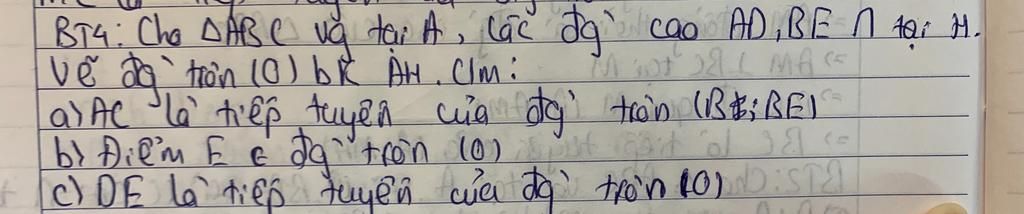 BT4: Cho ΔABC vg tại A, các đg` cao AD, BE ∩ tại H.
Vẽ đg` tròn (O) bk AH. C/m:
a) AC là tiếp tuyến của đg` tròn (B; BE)
b) Điểm E ∈ đg` tròn (O)
c) DE là tiếp tuyến của đg` tròn (O)